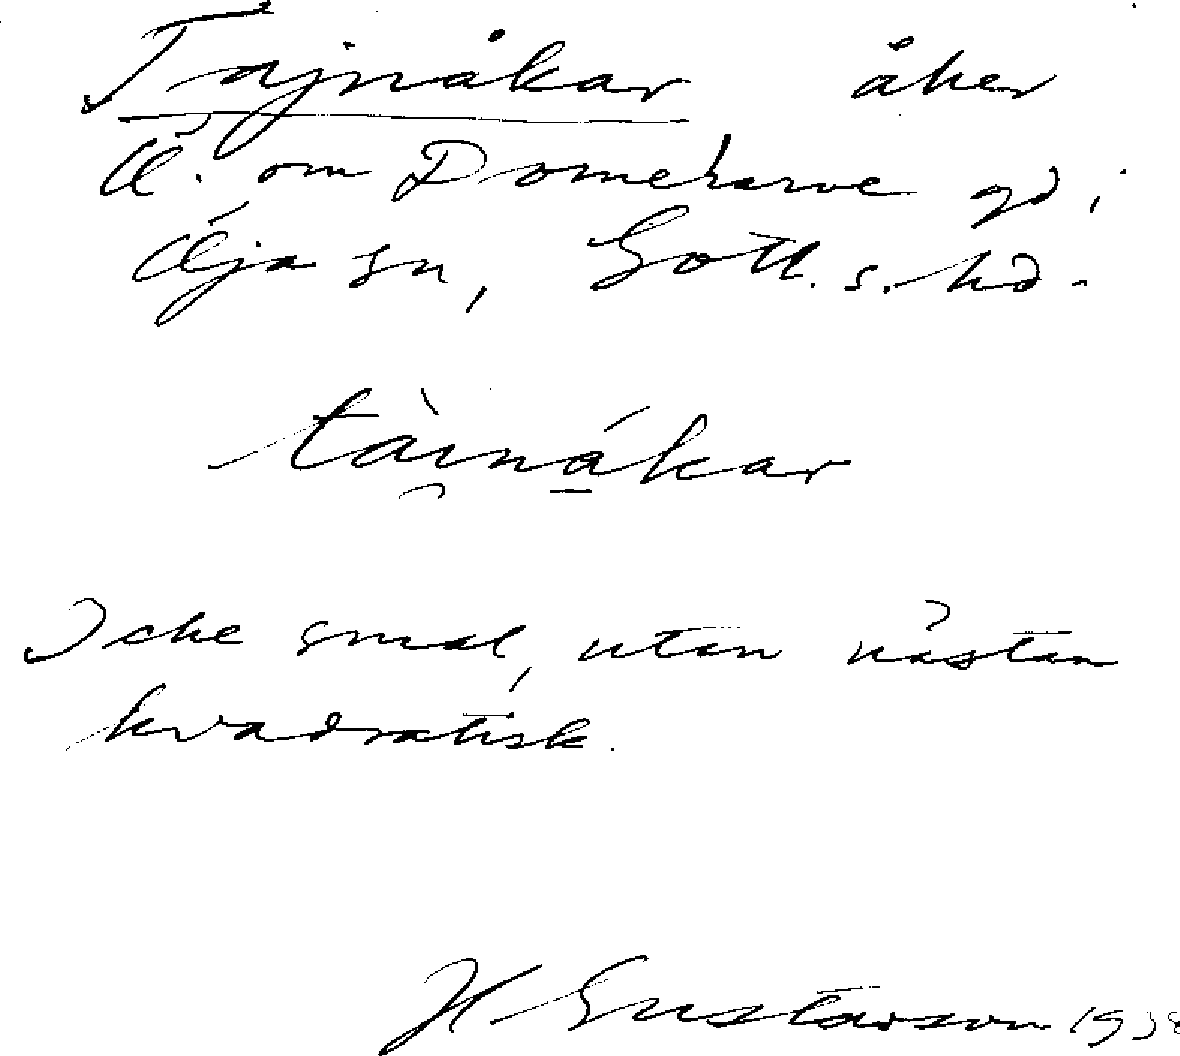 Tajnåkar åker
Ö. om Domerarve gd i
Öja sn, Gotl. s. hd.
tài̯nákar
Icke smal, utan nästan
kvadratisk.
H. Gustavson 1938